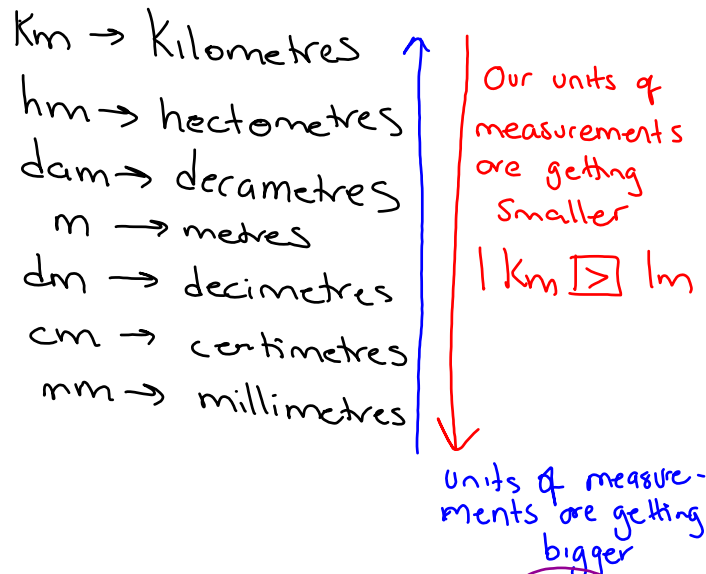 Km → Kilometres
hm → hectometres
dam → decametres
m → metres
dm → decimetres
cm → centimetres
mm → millimetres
Our units of
measurements
are getting
smaller
1 Km > 1m
units of measure-
ments are getting
bigger